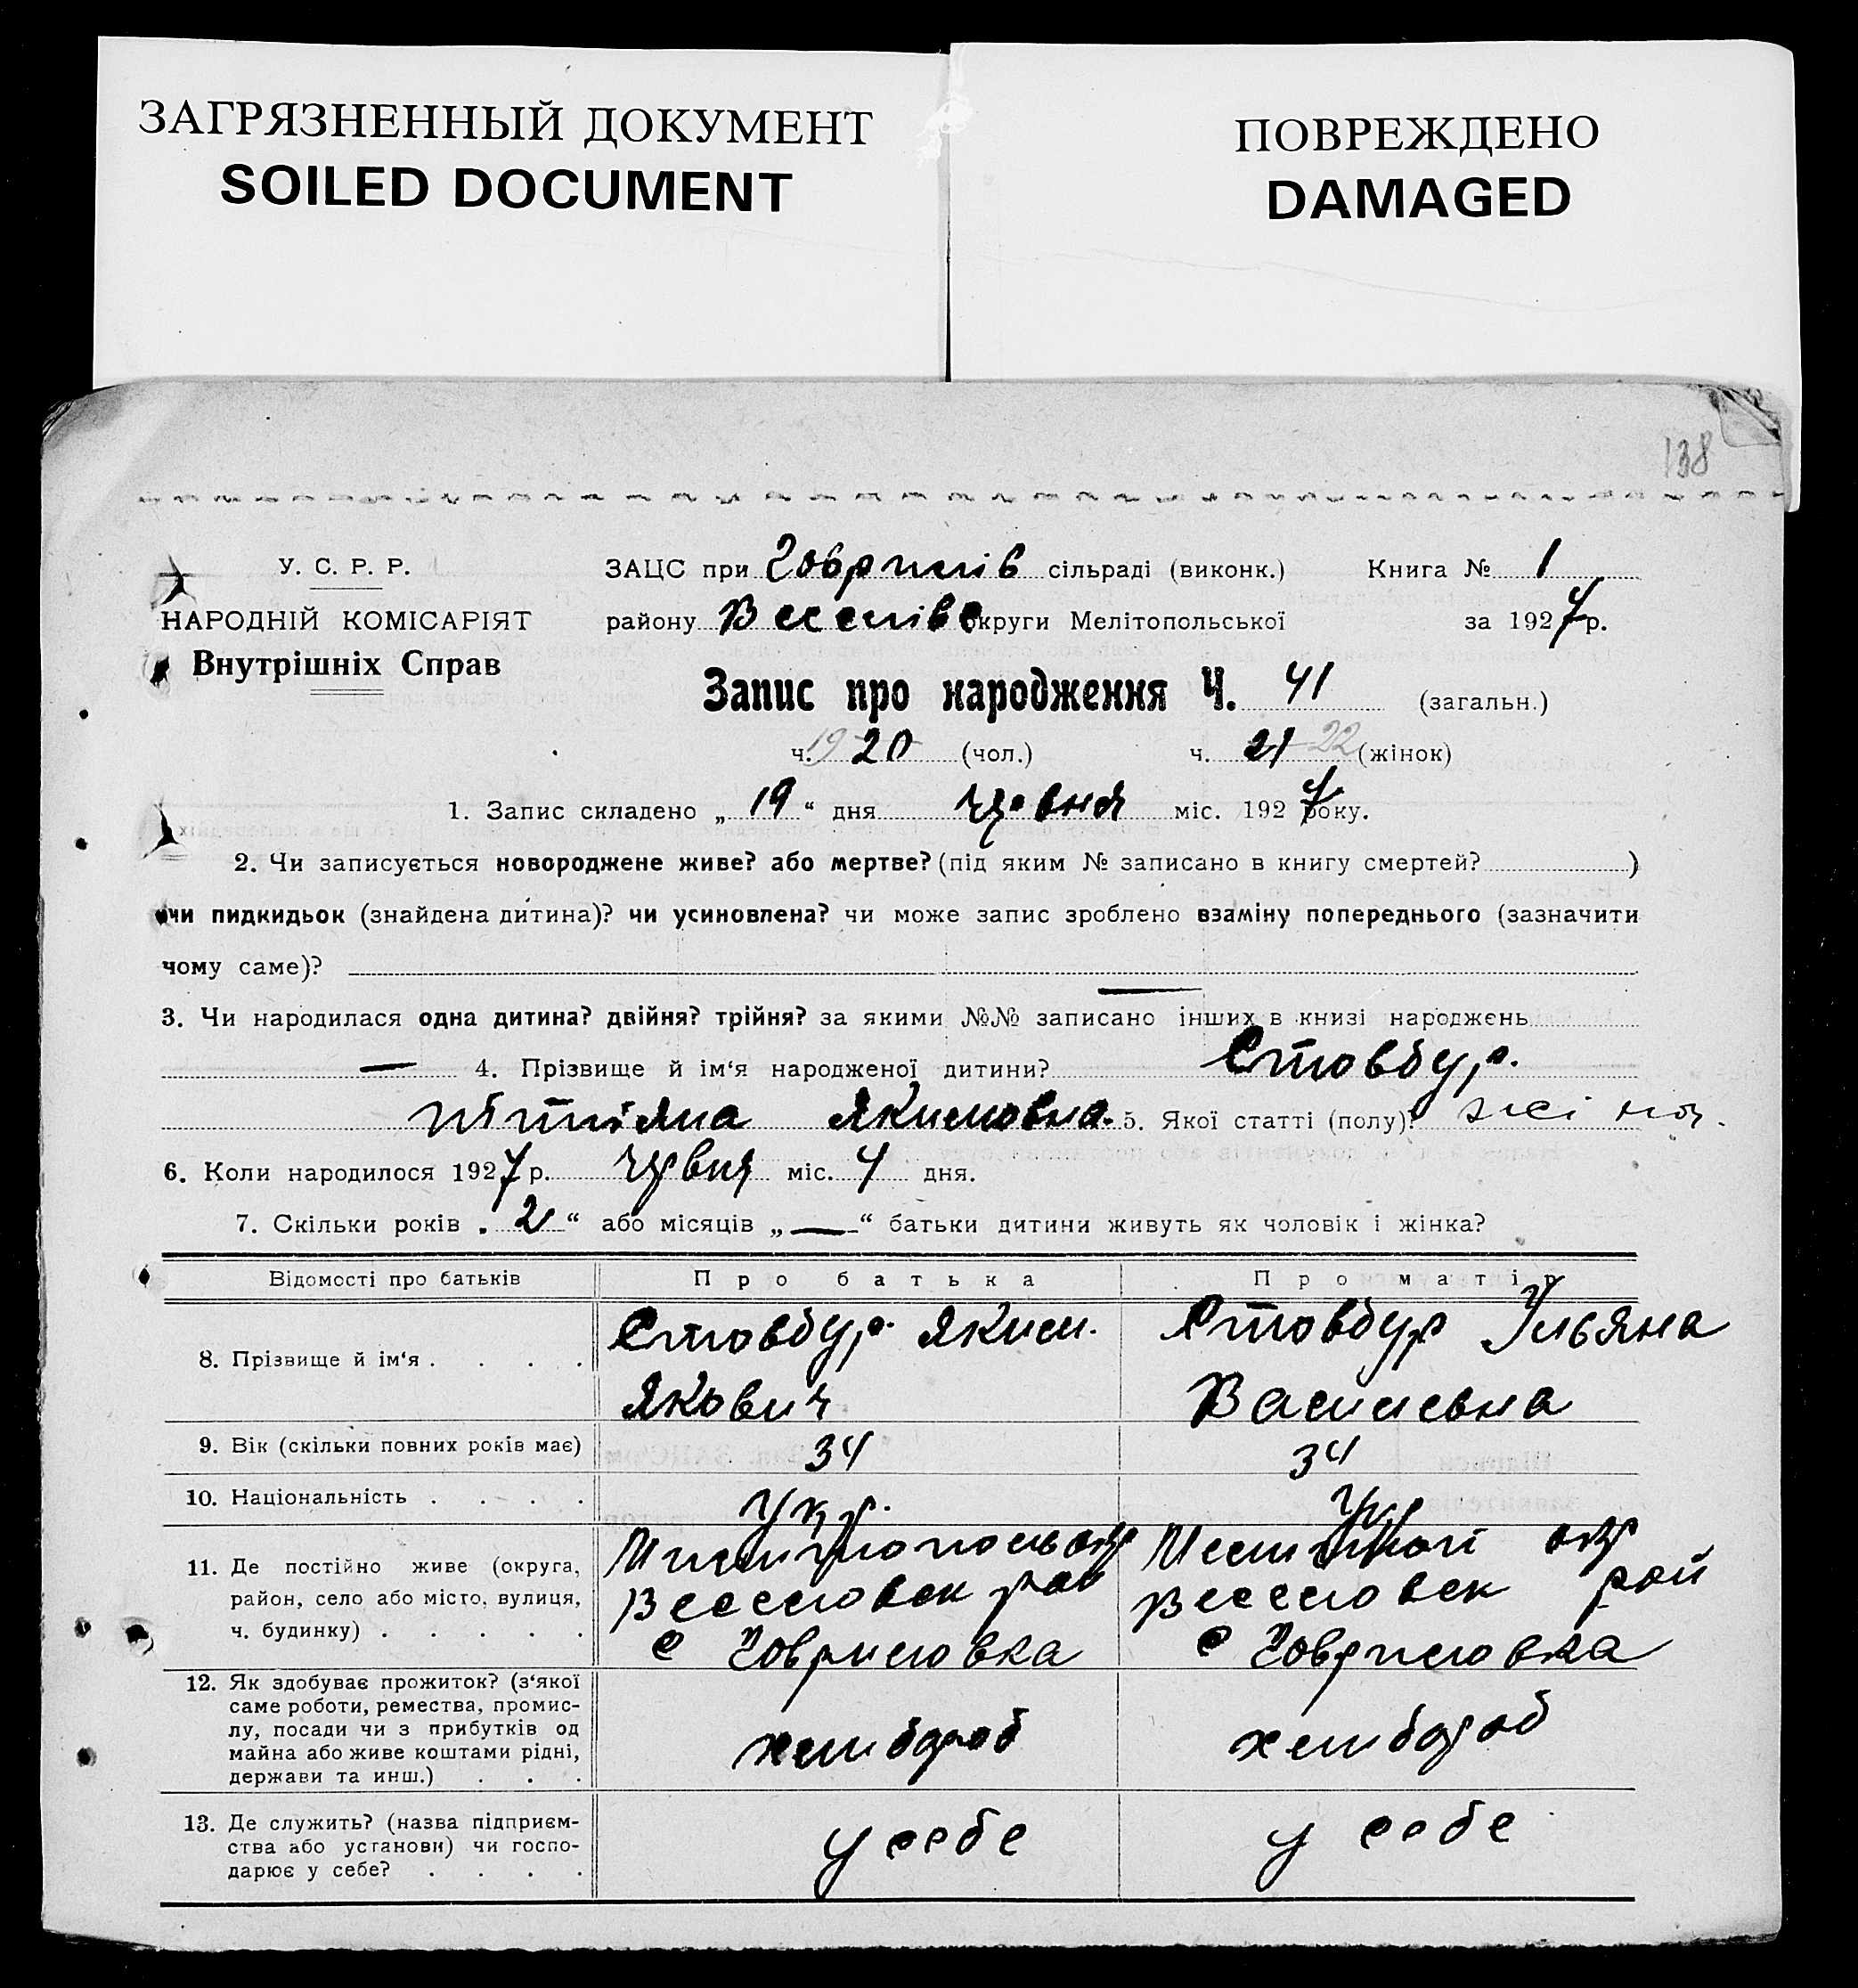 ЗАГРЯЗНЕННЫЙ ДОКУМЕНТ
SOILED DOCUMENT
ПОВРЕЖДЕНО
DAMAGED
138
У. С. Р. Р.
НАРОДНІЙ КОМІСАРІЯТ
Внутрішніх Справ
ЗАЦС при Говрилів сільраді (виконк.) Книга № 1
району Веселівс округи Мелітопольської за 1927 р.
Запис про народження Ч. 41 (загальн.)
ч. 19 20 (чол.) ч. 21 22 (жінок)
1. Запис складено „ 19 “ дня червня міс. 1927 року.
2. Чи записується новороджене живе? або мертве? (під яким № записано в книгу смертей? )
чи пидкидьок (знайдена дитина)? чи усиновлена? чи може запис зроблено взаміну попереднього (зазначити
чому саме)?
3. Чи народилася одна дитина? двійня? трійня? за якими №№ записано інших в книзі народжень —
— 4. Прізвище й ім‘я народженої дитини? Стовбур.
Якимовна. 5. Якої статті (полу)? жіноч.
6. Коли народилося 1927 р. червня міс. 4 дня.
7. Скільки років „ 2 “ або місяців „ — “ батьки дитини живуть як чоловік і жінка?
Відомості про батьків Про батька Про матір
8. Прізвище й ім‘я . . . . Стовбур Яким. Якович Стовбур Ульяна Василевна
9. Вік (скільки повних років має) 34 34
10. Національність . . . . Укр. Укр
11. Де постійно живе (округа,
район, село або місто, вулиця,
ч. будинку) . . . . .
окр
Веселовск рай
с Говриловка
окр
Веселовск рай
с Говриловка
12. Як здобуває прожиток? (з‘якої
саме роботи, ремества, промис-
лу, посади чи з прибутків од
майна або живе коштами рідні,
держави та инш.) . . .
хлибороб хлибороб
13. Де служить? (назва підприєм-
ства або установи) чи госпо-
дарює у себе? . . . .
у себе у себе